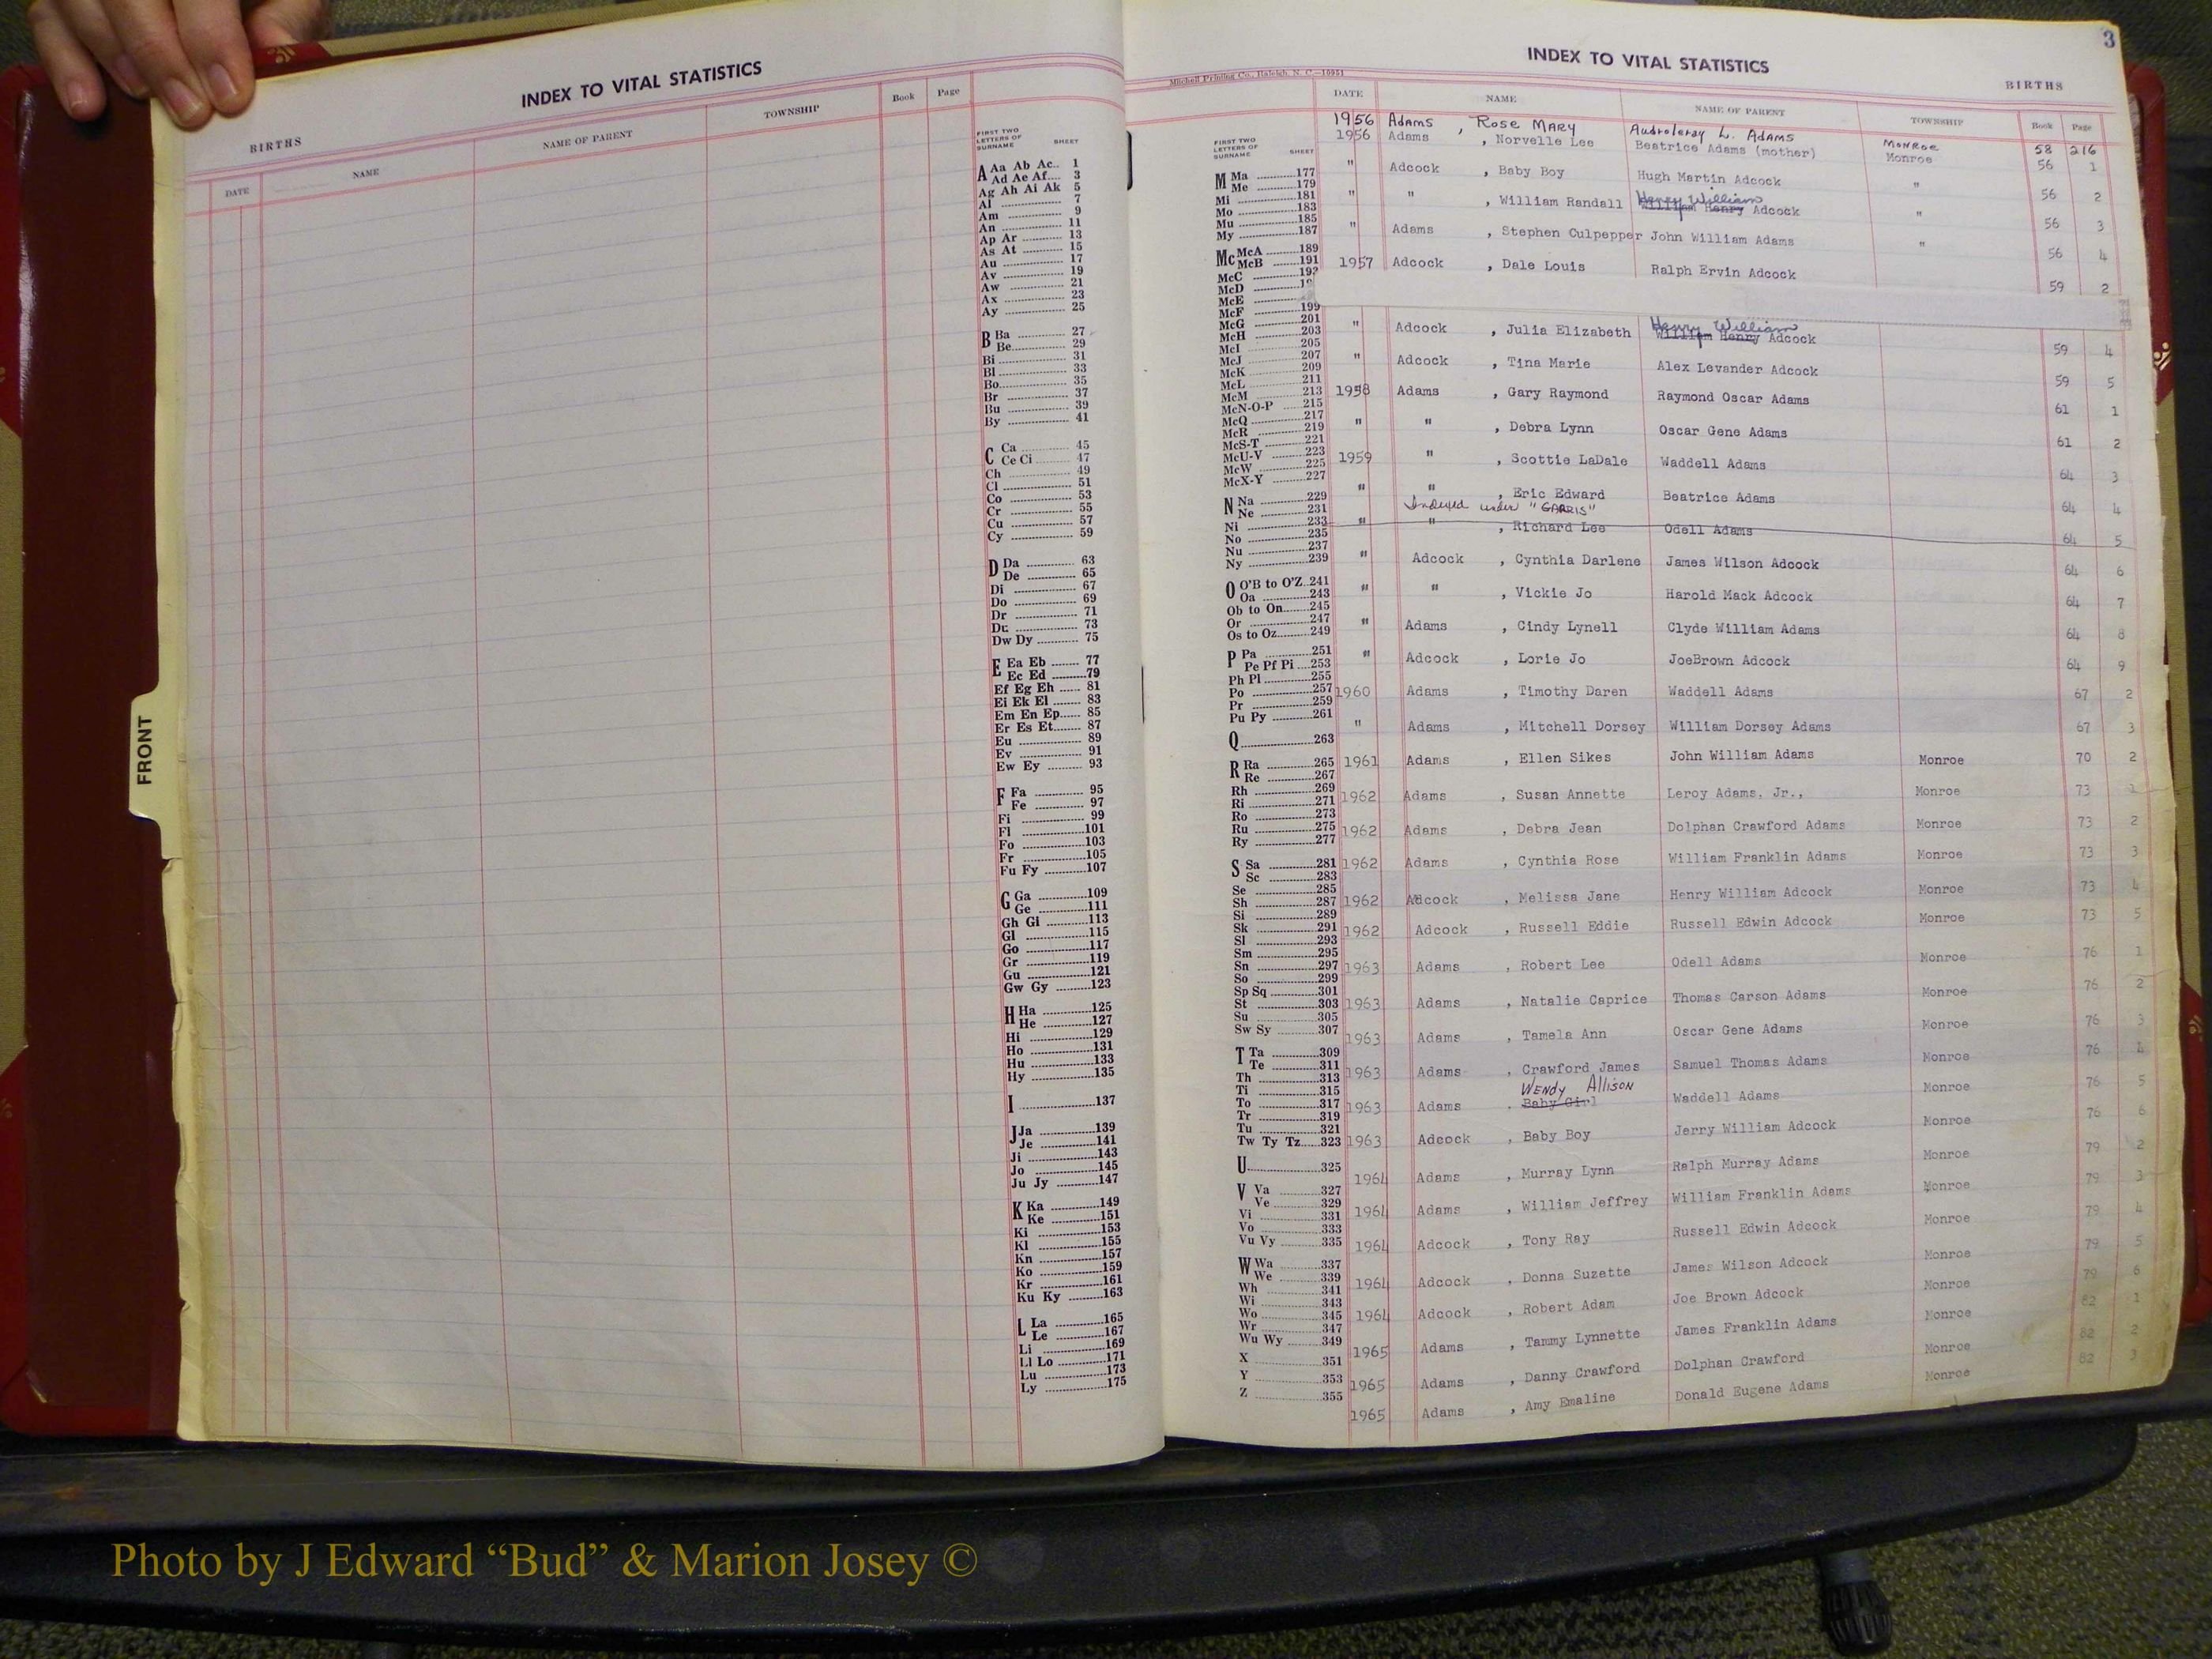 INDEX TO VITAL STATISTICS
BIRTHS
DATE NAME NAME OF PARENT TOWNSHIP Book Page
FIRST TWO LETTERS OF SURNAME SHEET
A Aa Ab Ac.. 1
Ad Ae Af.... 3
Ag Ah Ai Ak 5
Al 7
Am 9
An 11
Ap Ar 13
As At 15
Au 17
Av 19
Aw 21
Ax 23
Ay 25
B Ba 27
Be 29
Bi 31
Bl 33
Bo 35
Br 37
Bu 39
By 41
C Ca 45
Ce Ci 47
Ch 49
Cl 51
Co 53
Cr 55
Cu 57
Cy 59
D Da 63
De 65
Di 67
Do 69
Dr 71
Du 73
Dw Dy 75
E Ea Eb 77
Ec Ed 79
Ef Eg Eh 81
Ei Ek El 83
Em En Ep 85
Er Es Et 87
Eu 89
Ev 91
Ew Ey 93
F Fa 95
Fe 97
Fi 99
Fl 101
Fo 103
Fr 105
Fu Fy 107
G Ga 109
Ge 111
Gh Gi 113
Gl 115
Go 117
Gr 119
Gu 121
Gw Gy 123
H Ha 125
He 127
Hi 129
Ho 131
Hu 133
Hy 135
I 137
J Ja 139
Je 141
Ji 143
Jo 145
Ju Jy 147
K Ka 149
Ke 151
Ki 153
Kl 155
Kn 157
Ko 159
Kr 161
Ku Ky 163
L La 165
Le 167
Li 169
Ll Lo 171
Lu 173
Ly 175
FRONT
3
INDEX TO VITAL STATISTICS
Mitchell Printing Co., Raleigh, N. C.—16951
BIRTHS
DATE NAME NAME OF PARENT TOWNSHIP Book Page
FIRST TWO LETTERS OF SURNAME SHEET
M Ma 177
Me 179
Mi 181
Mo 183
Mu 185
My 187
Mc McA 189
McB 191
McC 193
McD
McE
McF 199
McG 201
McH 203
McI 205
McJ 207
McK 209
McL 211
McM 213
McN-O-P 215
McQ 217
McR 219
McS-T 221
McU-V 223
McW 225
McX-Y 227
N Na 229
Ne 231
Ni 233
No 235
Nu 237
Ny 239
O O'B to O'Z 241
Oa 243
Ob to On 245
Or 247
Os to Oz 249
P Pa 251
Pe Pf Pi 253
Ph Pl 255
Po 257
Pr 259
Pu Py 261
Q 263
R Ra 265
Re 267
Rh 269
Ri 271
Ro 273
Ru 275
Ry 277
S Sa 281
Sc 283
Se 285
Sh 287
Si 289
Sk 291
Sl 293
Sm 295
Sn 297
So 299
Sp Sq 301
St 303
Su 305
Sw Sy 307
T Ta 309
Te 311
Th 313
Ti 315
To 317
Tr 319
Tu 321
Tw Ty Tz 323
U 325
V Va 327
Ve 329
Vi 331
Vo 333
Vu Vy 335
W Wa 337
We 339
Wh 341
Wi 343
Wo 345
Wr 347
Wu Wy 349
X 351
Y 353
Z 355
1956 Adams , Rose MARY Audroleray L. ADAMS MONROE 58 216
1956 Adams , Norvelle Lee Beatrice Adams (mother) Monroe 56 1
" Adcock , Baby Boy Hugh Martin Adcock " 56 2
" " , William Randall Henry William William Henry Adcock " 56 3
" Adams , Stephen Culpepper John William Adams " 56 4
1957 Adcock , Dale Louis Ralph Ervin Adcock 59 2
" Adcock , Julia Elizabeth Henry William William Henry Adcock 59 4
" Adcock , Tina Marie Alex Levander Adcock 59 5
1958 Adams , Gary Raymond Raymond Oscar Adams 61 1
" " , Debra Lynn Oscar Gene Adams 61 2
1959 " , Scottie LaDale Waddell Adams 64 3
" " , Eric Edward Beatrice Adams 64 4
Indexed under "GARRIS"
" " , Richard Lee Odell Adams 64 5
" Adcock , Cynthia Darlene James Wilson Adcock 64 6
" " , Vickie Jo Harold Mack Adcock 64 7
" Adams , Cindy Lynell Clyde William Adams 64 8
" Adcock , Lorie Jo JoeBrown Adcock 64 9
1960 Adams , Timothy Daren Waddell Adams 67 2
" Adams , Mitchell Dorsey William Dorsey Adams 67 3
1961 Adams , Ellen Sikes John William Adams Monroe 70 2
1962 Adams , Susan Annette Leroy Adams, Jr., Monroe 73 1
1962 Adams , Debra Jean Dolphan Crawford Adams Monroe 73 2
1962 Adams , Cynthia Rose William Franklin Adams Monroe 73 3
1962 Adcock , Melissa Jane Henry William Adcock Monroe 73 4
1962 Adcock , Russell Eddie Russell Edwin Adcock Monroe 73 5
1963 Adams , Robert Lee Odell Adams Monroe 76 1
1963 Adams , Natalie Caprice Thomas Carson Adams Monroe 76 2
1963 Adams , Tamela Ann Oscar Gene Adams Monroe 76 3
1963 Adams , Crawford James Samuel Thomas Adams Monroe 76 4
WENDY ALLISON
1963 Adams , Baby Girl Waddell Adams Monroe 76 5
1963 Adcock , Baby Boy Jerry William Adcock Monroe 76 6
1964 Adams , Murray Lynn Ralph Murray Adams Monroe 79 2
1964 Adams , William Jeffrey William Franklin Adams Monroe 79 3
1964 Adcock , Tony Ray Russell Edwin Adcock Monroe 79 4
1964 Adcock , Donna Suzette James Wilson Adcock Monroe 79 5
1964 Adcock , Robert Adam Joe Brown Adcock Monroe 79 6
1965 Adams , Tammy Lynnette James Franklin Adams Monroe 82 1
1965 Adams , Danny Crawford Dolphan Crawford Monroe 82 2
1965 Adams , Amy Emaline Donald Eugene Adams Monroe 82 3
Photo by J Edward “Bud” & Marion Josey ©